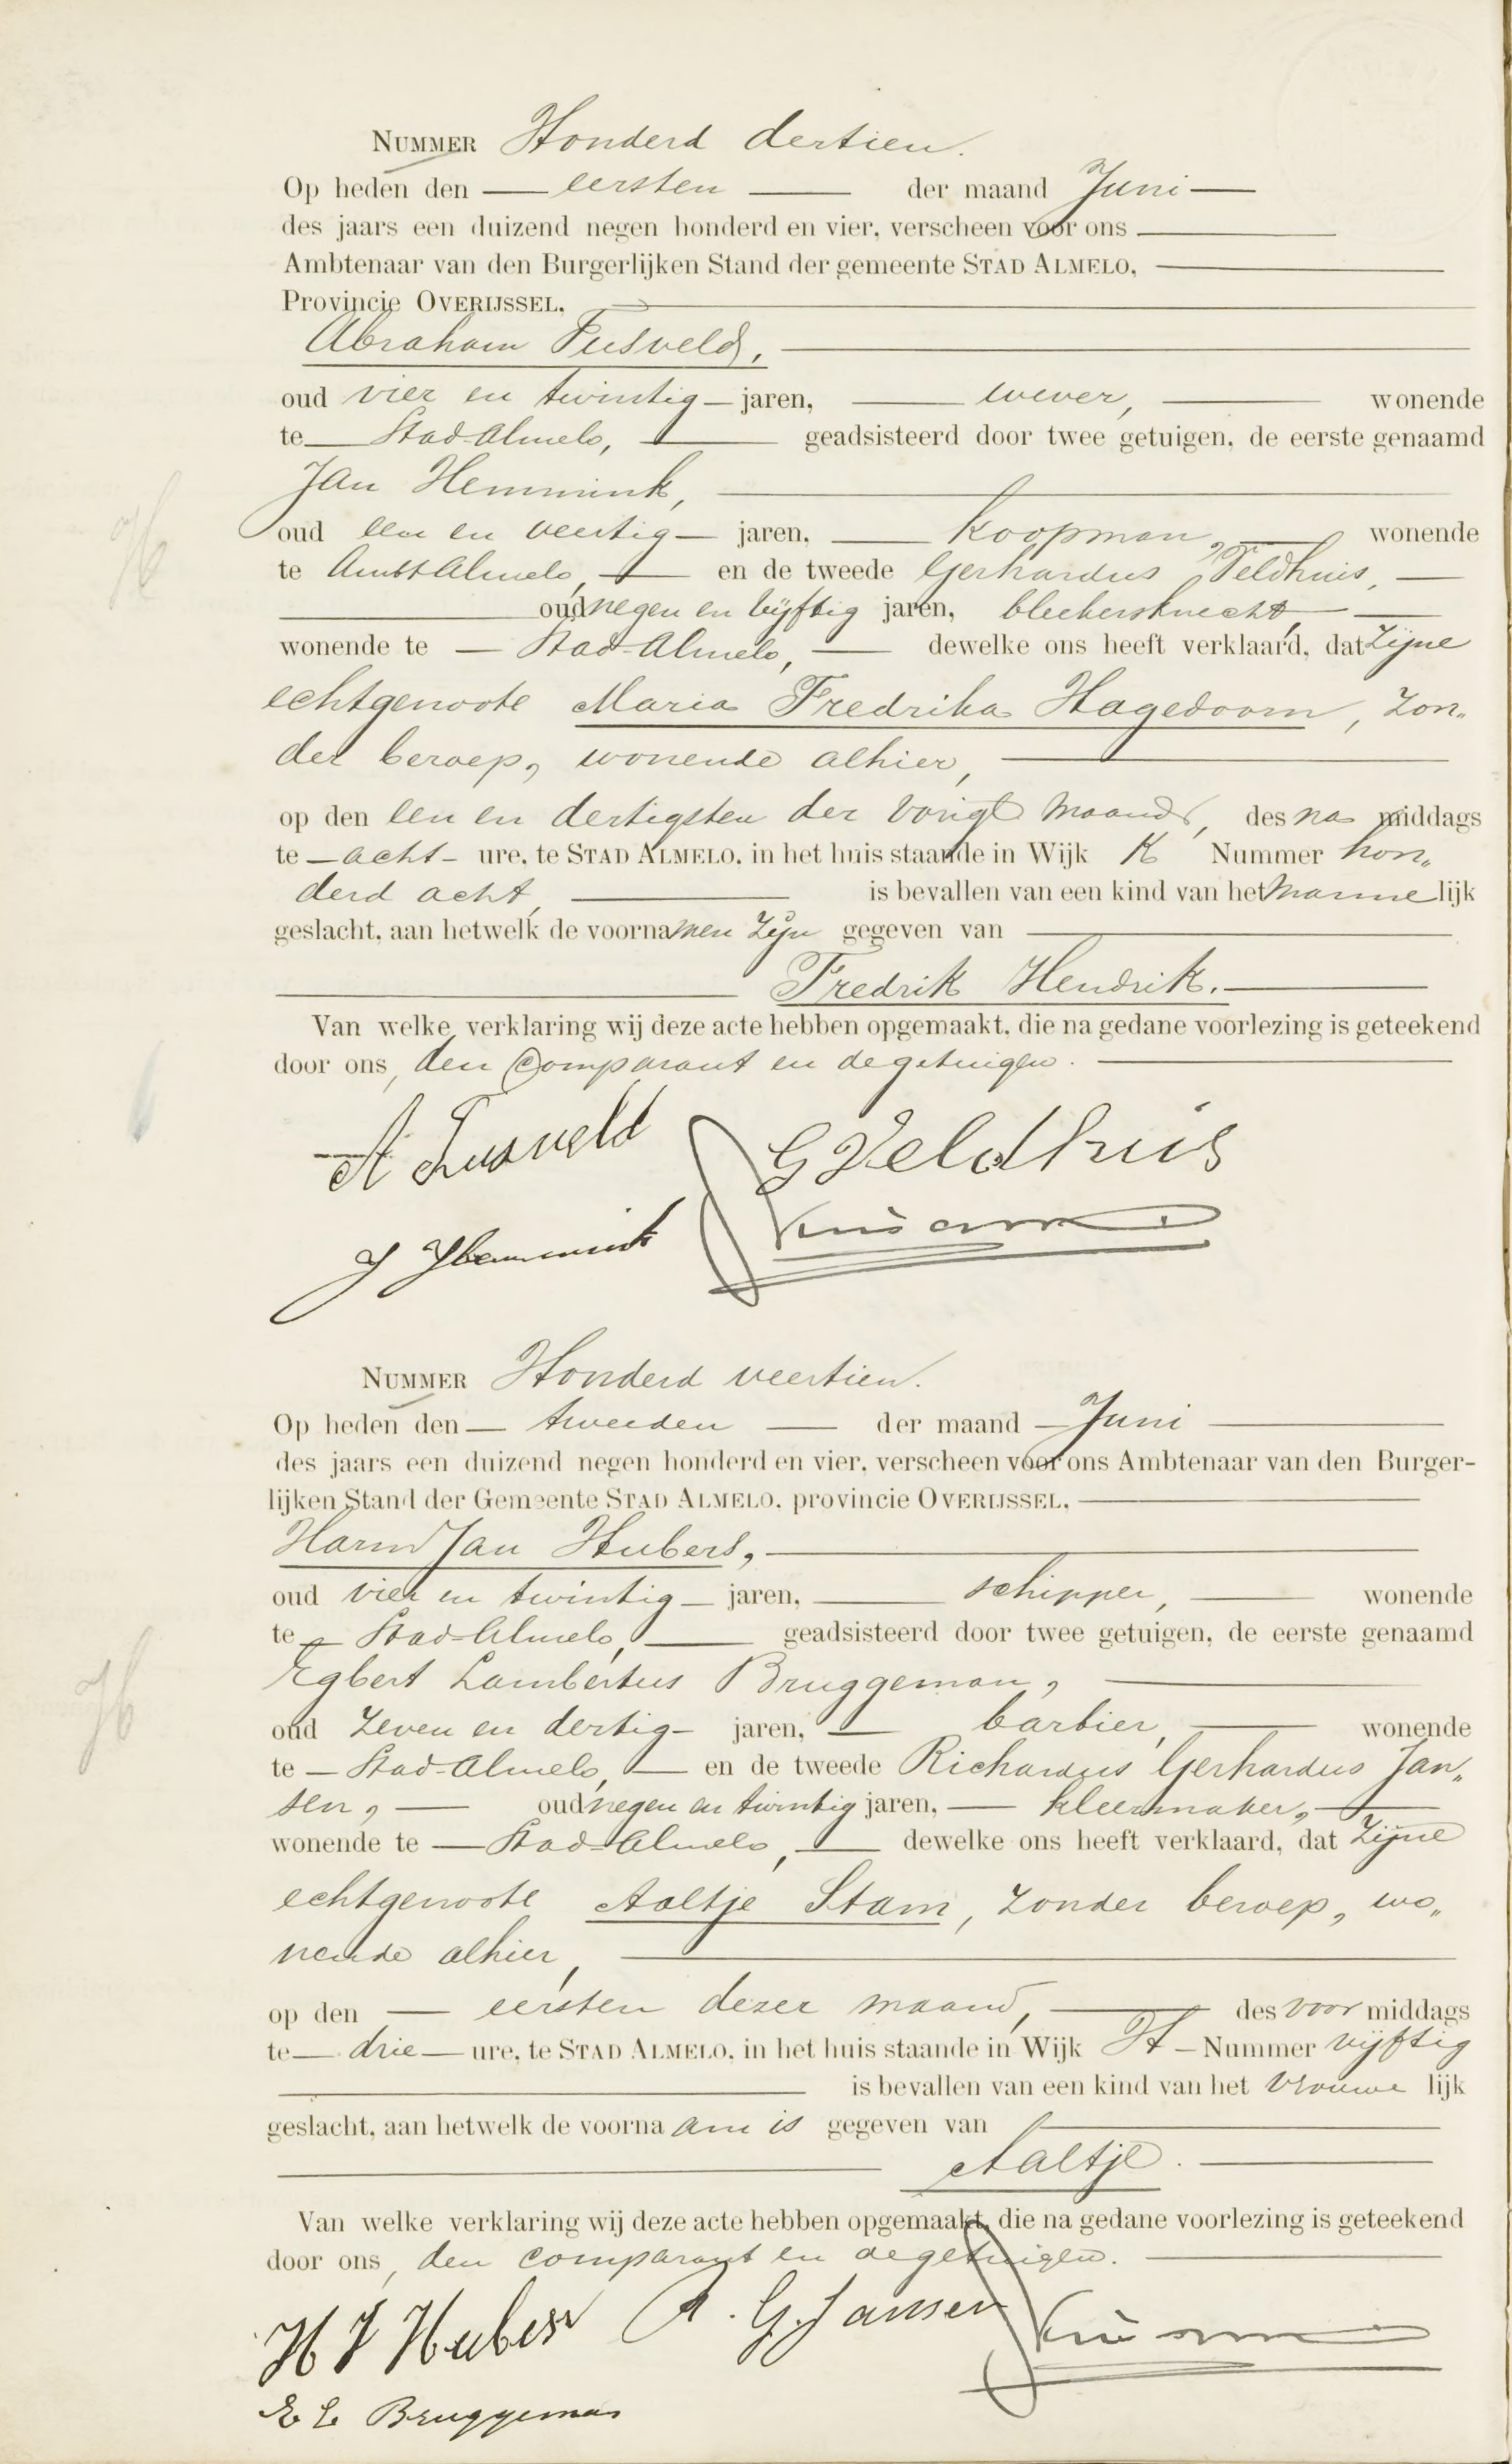 NUMMER Honderd dertien.
Op heden den eersten der maand Juni
des jaars een duizend negen honderd en vier, verscheen voor ons
Ambtenaar van den Burgerlijken Stand der gemeente STAD ALMELO,
Provincie OVERIJSSEL,
Abraham Fusveld,
oud vier en twintig jaren, wever, wonende
te Stad-Almelo, geadsisteerd door twee getuigen, de eerste genaamd
Jan Hemmink,
oud een en veertig jaren, koopman, wonende
te Ambt Almelo, en de tweede Gerhardus Veldhuis,
oud negen en vijftig jaren, bleekersknecht,
wonende te Stad-Almelo, dewelke ons heeft verklaard, dat zijne
echtgenoote Maria Fredrika Hagedoorn, zon„
der beroep, wonende alhier,
op den een en dertigsten der vorige maand, des na middags
te acht ure, te STAD ALMELO, in het huis staande in Wijk K Nummer hon„
derd acht, is bevallen van een kind van het manne lijk
geslacht, aan hetwelk de voornamen zijn gegeven van
Fredrik Hendrik.
Van welke verklaring wij deze acte hebben opgemaakt, die na gedane voorlezing is geteekend
door ons, den Comparant en de getuigen.
A Fusveld G Veldhuis
J Hemmink
NUMMER Honderd veertien.
Op heden den tweeden der maand Juni
des jaars een duizend negen honderd en vier, verscheen voor ons Ambtenaar van den Burger-
lijken Stand der Gemeente STAD ALMELO, provincie OVERIJSSEL,
Harm Jan Hubers,
oud vier en twintig jaren, schipper, wonende
te Stad-Almelo, geadsisteerd door twee getuigen, de eerste genaamd
Egbert Lambertus Bruggeman,
oud zeven en dertig jaren, barbier, wonende
te Stad-Almelo, en de tweede Richardus Gerhardus Jan„
sen, oud negen en twintig jaren, kleermaker,
wonende te Stad-Almelo, dewelke ons heeft verklaard, dat zijne
echtgenoote Aaltje Stam, zonder beroep, wo„
nende alhier,
op den eersten dezer maand, des voor middags
te drie ure, te STAD ALMELO, in het huis staande in Wijk H Nummer vijftig
is bevallen van een kind van het vrouwe lijk
geslacht, aan hetwelk de voorna am is gegeven van
Aaltje.
Van welke verklaring wij deze acte hebben opgemaakt, die na gedane voorlezing is geteekend
door ons, den comparant en de getuigen.
H J Hubers R. G. Jansen
E L Bruggeman